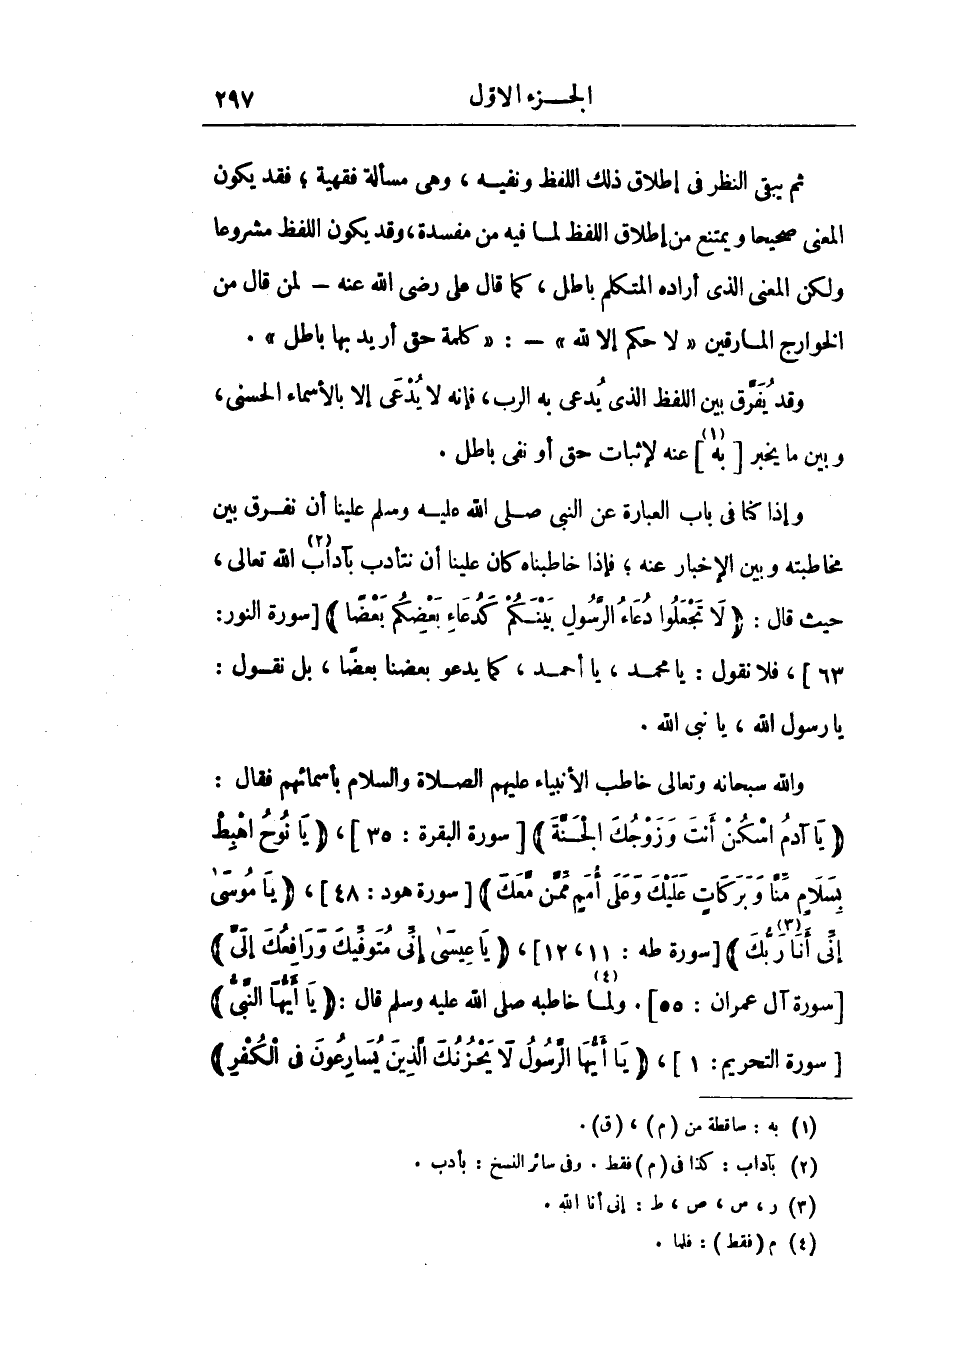 الجزء الاول ٢٩٧
ثم يبقى النظر فى إطلاق ذلك اللفظ ونفيه ، وهى مسألة فقهية ؛ فقد يكون
المعنى صحيحا ويمتنع من إطلاق اللفظ لما فيه من مفسدة، وقد يكون اللفظ مشروعا
ولكن المعنى الذى أراده المتكلم باطل ، كما قال على رضى الله عنه – لمن قال من
الخوارج المارقين « لا حكم إلا لله » – : « كلمة حق أريد بها باطل » .
وقد يُفَرَّق بين اللفظ الذى يُدعى به الرب، فإنه لا يُدْعَى إلا بالأسماء الحسنى،
وبين ما يخبر [ به(١) ] عنه لإثبات حق أو نفى باطل .
وإذا كنا فى باب العبارة عن النبى صلى الله عليه وسلم علينا أن نفرق بين
مخاطبته وبين الإخبار عنه ؛ فإذا خاطبناه كان علينا أن نتأدب بآداب(٢) الله تعالى ،
حيث قال : ﴿ لَا تَجْعَلُوا دُعَاءَ الرَّسُولِ بَيْنَكُمْ كَدُعَاءِ بَعْضِكُم بَعْضًا ﴾ [سورة النور:
٦٣ ] ، فلا نقول : يا محمد ، يا أحمد ، كما يدعو بعضنا بعضًا ، بل نقول :
يا رسول الله ، يا نبى الله .
والله سبحانه وتعالى خاطب الأنبياء عليهم الصلاة والسلام بأسمائهم فقال :
﴿ يَا آدَمُ اسْكُنْ أَنتَ وَزَوْجُكَ الْجَنَّةَ ﴾ [ سورة البقرة : ٣٥ ] ، ﴿ يَا نُوحُ اهْبِطْ
بِسَلَامٍ مِّنَّا وَبَرَكَاتٍ عَلَيْكَ وَعَلَى أُمَمٍ مِّمَّن مَّعَكَ ﴾ [ سورة هود : ٤٨ ] ، ﴿ يَا مُوسَىٰ
إِنِّى أَنَا رَبُّكَ(٣) ﴾ [سورة طه : ١١، ١٢] ، ﴿ يَا عِيسَىٰ إِنِّى مُتَوَفِّيكَ وَرَافِعُكَ إِلَىَّ ﴾
[سورة آل عمران : ٥٥] . ولما(٤) خاطبه صلى الله عليه وسلم قال : ﴿ يَا أَيُّهَا النَّبِىُّ ﴾
[ سورة التحريم: ١ ] ، ﴿ يَا أَيُّهَا الرَّسُولُ لَا يَحْزُنكَ الَّذِينَ يُسَارِعُونَ فِى الْكُفْرِ ﴾
(١) به : ساقطة من (م) ، (ق) .
(٢) بآداب : كذا فى (م) فقط . وفى سائر النسخ : بأدب .
(٣) ر ، س ، ص ، ط : إنى أنا الله .
(٤) م (فقط) : فلما .